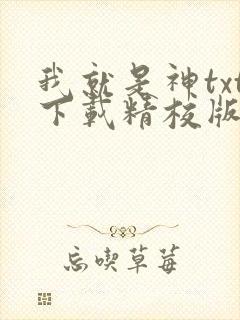 我就是神txt
下載精校版
忘喫草莓